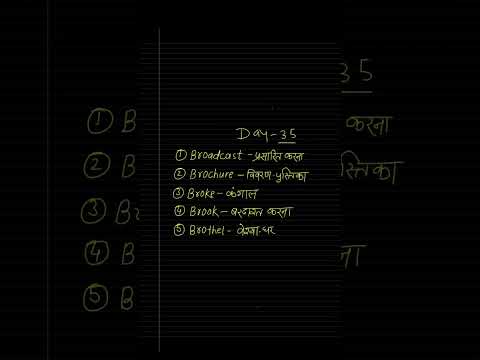 Day-35
① Broadcast - प्रसारित करना
② Brochure - विवरण-पुस्तिका
③ Broke - कंगाल
④ Brook - बरदाश्त करना
⑤ Brothel - वेश्या-घर